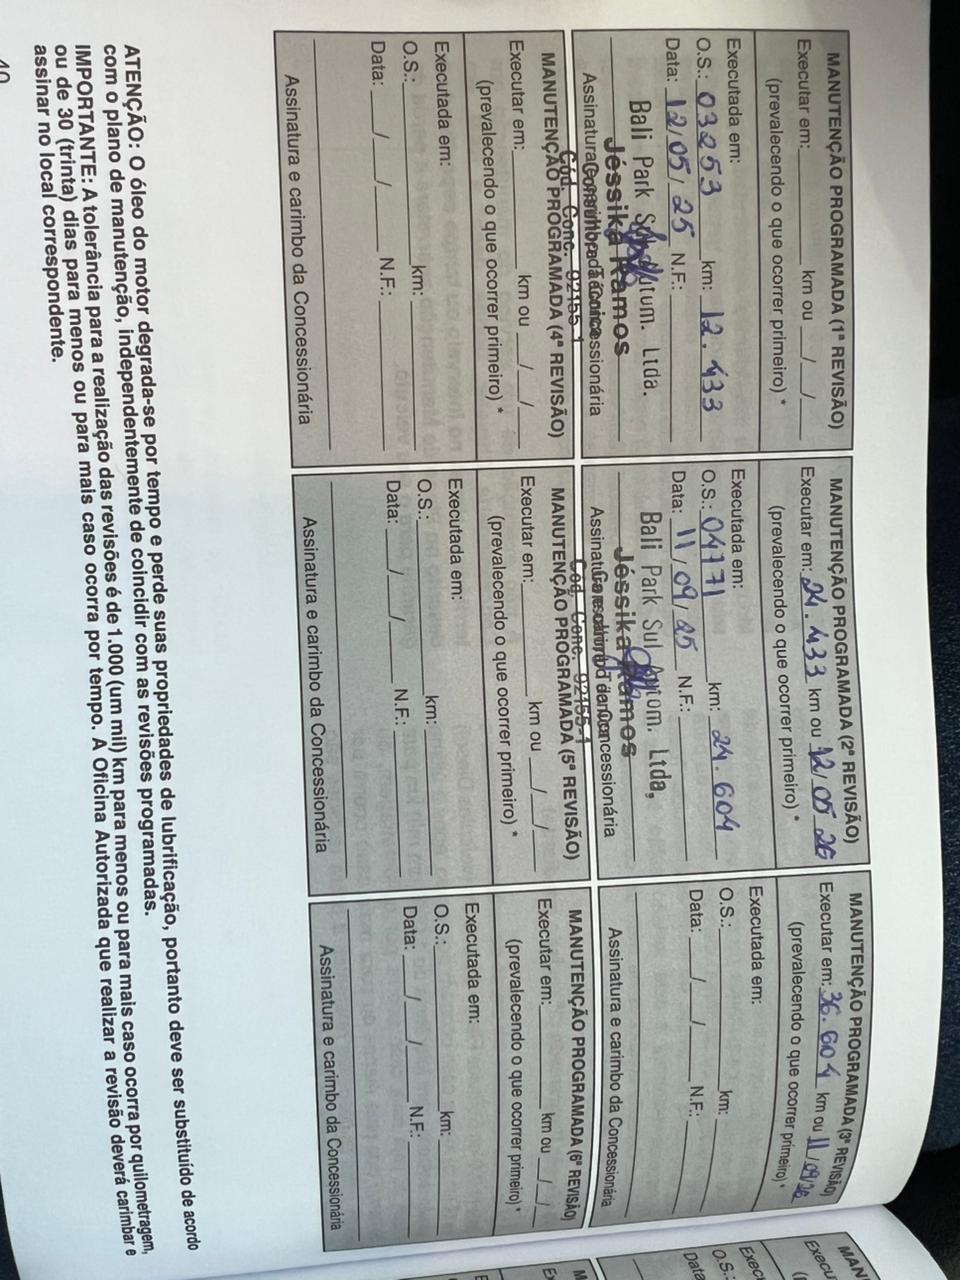 MANUTENÇÃO PROGRAMADA (1ª REVISÃO)
Executar em: km ou / /
(prevalecendo o que ocorrer primeiro) *
Executada em:
O.S.: 03253 km: 12.433
Data: 12/05/25 N.F.:
Bali Park Sul Autom. Ltda.
Jéssika Ramos
Assinatura e carimbo da Concessionária
Cód. Conc. 92155-1
MANUTENÇÃO PROGRAMADA (2ª REVISÃO)
Executar em: 24.433 km ou 12/05/26
(prevalecendo o que ocorrer primeiro) *
Executada em:
O.S.: 04171 km: 24.604
Data: 11/09/25 N.F.:
Bali Park Sul Autom. Ltda,
Jéssika Ramos
Assinatura e carimbo da Concessionária
Cód. Conc. 92155-1
MANUTENÇÃO PROGRAMADA (3ª REVISÃO)
Executar em: 36.604 km ou 11/09/26
(prevalecendo o que ocorrer primeiro) *
Executada em:
O.S.: km:
Data: / / N.F.:
Assinatura e carimbo da Concessionária
MANUTENÇÃO PROGRAMADA (4ª REVISÃO)
Executar em: km ou / /
(prevalecendo o que ocorrer primeiro) *
Executada em:
O.S.: km:
Data: / / N.F.:
Assinatura e carimbo da Concessionária
MANUTENÇÃO PROGRAMADA (5ª REVISÃO)
Executar em: km ou / /
(prevalecendo o que ocorrer primeiro) *
Executada em:
O.S.: km:
Data: / / N.F.:
Assinatura e carimbo da Concessionária
MANUTENÇÃO PROGRAMADA (6ª REVISÃO)
Executar em: km ou / /
(prevalecendo o que ocorrer primeiro) *
Executada em:
O.S.: km:
Data: / / N.F.:
Assinatura e carimbo da Concessionária
ATENÇÃO: O óleo do motor degrada-se por tempo e perde suas propriedades de lubrificação, portanto deve ser substituído de acordo
com o plano de manutenção, independentemente de coincidir com as revisões programadas.
IMPORTANTE: A tolerância para a realização das revisões é de 1.000 (um mil) km para menos ou para mais caso ocorra por quilometragem,
ou de 30 (trinta) dias para menos ou para mais caso ocorra por tempo. A Oficina Autorizada que realizar a revisão deverá carimbar e
assinar no local correspondente.